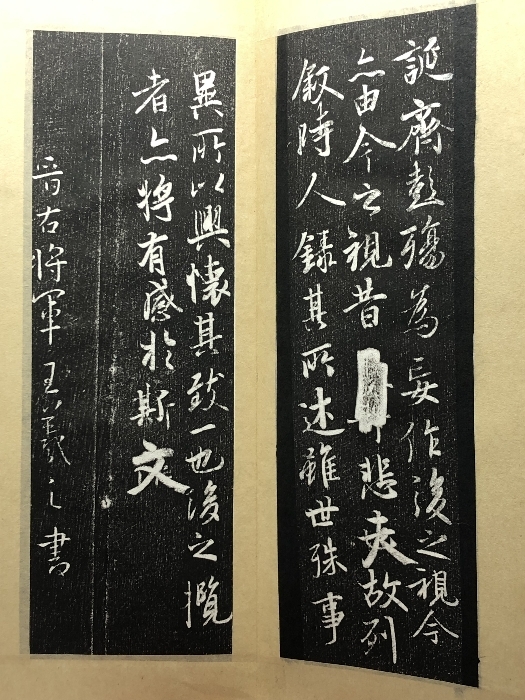 誕齊彭殤為妄作後之視今
亦由今之視昔悲夫故列
敘時人錄其所述雖世殊事
異所以興懷其致一也後之攬
者亦將有感於斯文
晉右將軍王羲之書